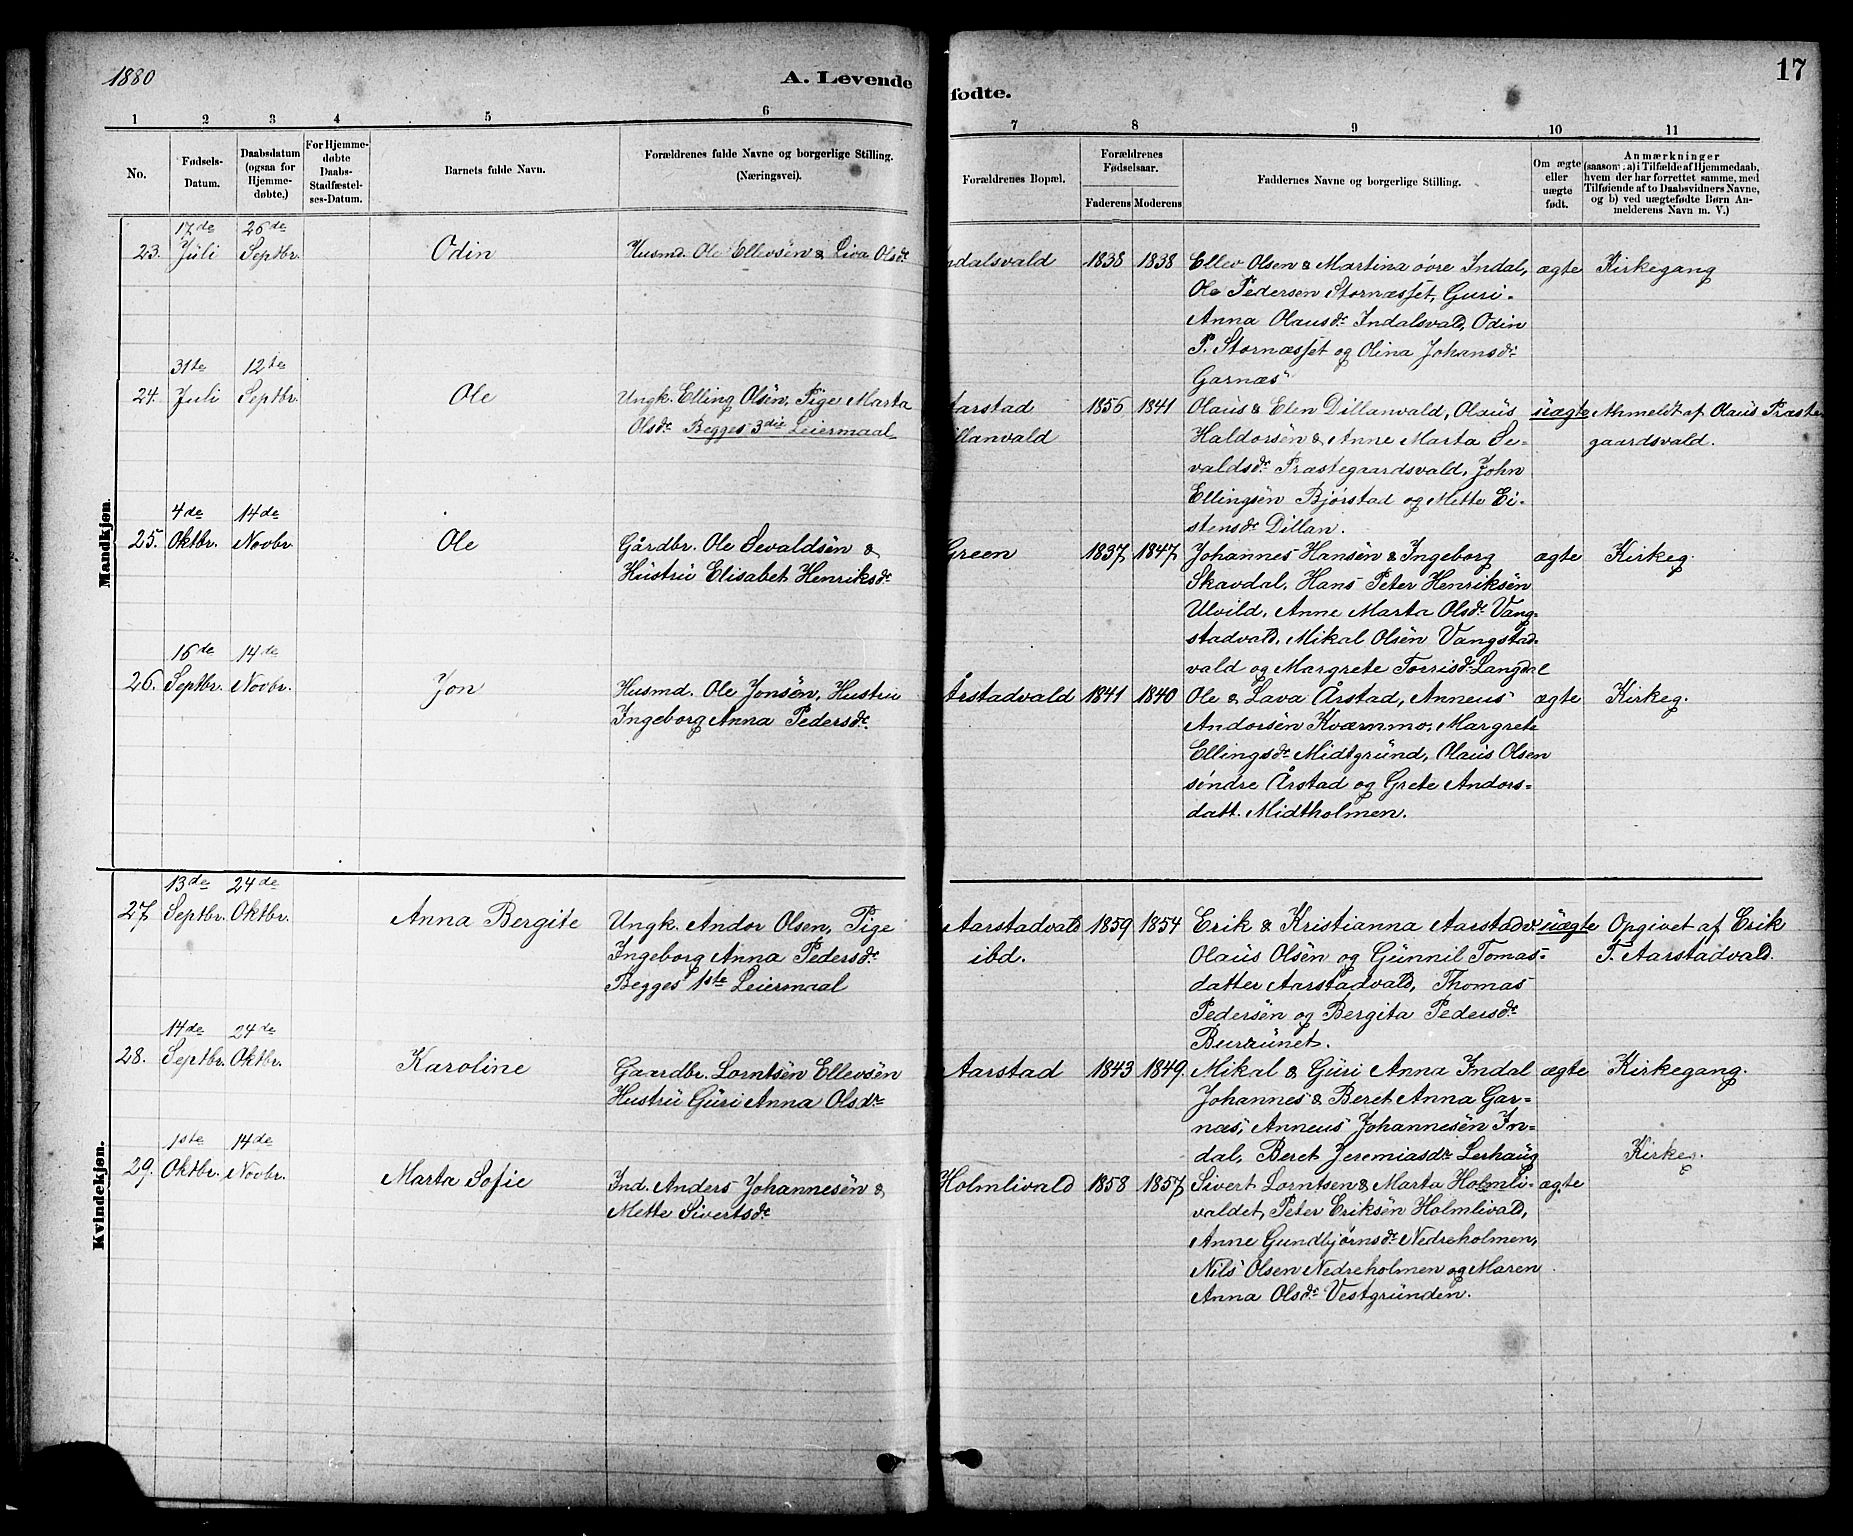 1880
A. Levende fødte.
17
1 2 3 4 5 6 7 8 9 10 11
No.
Fødsels-Datum.
Daabsdatum (ogsaa for Hjemmedøbte.)
For Hjemmedøbte Daabs-Stadfæstelses-Datum.
Barnets fulde Navn.
Forældrenes fulde Navne og borgerlige Stilling. (Næringsvei).
Forældrenes Bopæl.
Forældrenes Fødselsaar.
Faderens Moderens
Faddernes Navne og borgerlige Stilling.
Om ægte eller uægte født.
Anmærkninger
(saasom: a) i Tilfælde af Hjemmedaab, hvem der har forrettet samme, med Tilføiende af to Daabsvidners Navne, og b) ved uægtefødte Børn Anmelderens Navn m. V.)
Mandkjøn.
17de 26de
23. Juli Septbr. Odin Husmd. Ole Ellevsen & Liva Olsdr. ndalsvald 1838 1838 Ellev Olsen & Martina øvre Indal, ægte Kirkegang
Ole Pedersen Stornæsset, Guri
Anna Olausdr. Indalsvald, Odin
P. Stornæsset og Olina Johansdr.
Garnæs
31te 12te
24. Juli Septbr. Ole Ungk. Elling Olsen, Pige Marta arstad 1856 1841 Olaus & Elen Dillanvald, Olaus uægte Anmeldt af Olaus Præste-
Olsdr. Begges 3die Leiermaal illanvald Haldorsen & Anne Marta Se- gaardsvald.
valdsdr. Præstegaardsvald, John
Ellingsen Bjørstad og Mette Ei-
stensdr. Dillan.
4de 14de
25. Oktbr. Novbr. Ole Gårdbr. Ole Sevaldsen & Green 1837 1847 Johannes Hansen & Ingeborg ægte Kirkeg.
Hustru Elisabet Henriksdr. Skavdal, Hans Peter Henriksen
Ulvild, Anne Marta Olsdr. Vang-
stadvald, Mikal Olsen Vangstad-
vald og Margrete Torrisdr. Langdal
16de 14de
26. Septbr. Novbr. Jon Husmd. Ole Jonsen, Hustru Årstadvald 1841 1840 Ole & Lava Årstad, Anneus ægte Kirkeg.
Ingeborg Anna Pedersdr. Andorsen Kværnmo, Margrete
Ellingsdr. Midtgrund, Olaus Olsen
søndre Årstad og Grete Andors-
datt. Midtholmen.
Kvindekjøn.
13de 24de
27 Septbr. Oktbr. Anna Bergite Ungk. Andor Olsen, Pige Aarstadvald 1859 1854 Erik & Kristianna Aarstadv. uægte Opgivet af Erik
Ingeborg Anna Pedersdr. ibd. Olaus Olsen og Gunnil Tomas- T. Aarstadvald.
Begges 1ste Leiermaal datter Aarstadvald, Thomas
Pedersen og Bergita Pedersdr.
Burunet.
14de 24de
28. Septbr. Oktbr. Karoline Gaardbr. Lorntsen Ellevsen Aarstad 1843 1849. Mikal & Guri Anna Indal ægte Kirkegang.
Hustru Guri Anna Olsdr. Johannes & Beret Anna Gar-
næs, Anneus Johannesen In-
dal, Beret Jeremiasdr. Lerhaug
1ste 14de
29. Oktbr. Novbr. Marta Sofie Ind. Anders Johannesen & Holmlivald 1858 1857 Sivert Lorntsen & Marta Holmli- ægte Kirkeg.
Mette Sivertsdr. valdet, Peter Eriksen Holmlivald,
Anne Gundbjørnsdr. Nedreholmen,
Nils Olsen Nedreholmen og Maren
Anna Olsdr. Vestgrunden.